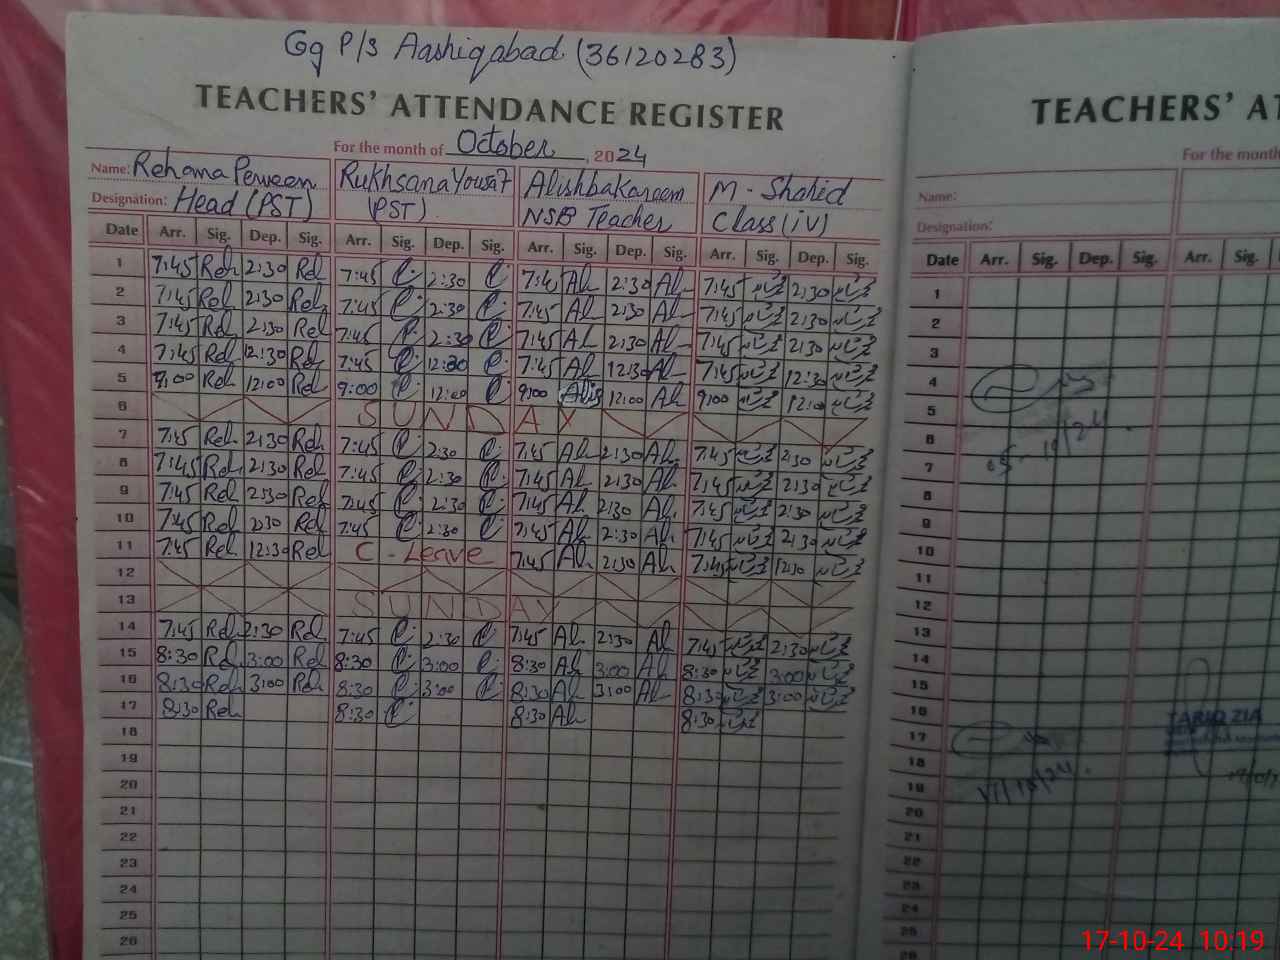 Gg P/s Aashiqabad (36120283)
TEACHERS' ATTENDANCE REGISTER
For the month of October, 2024
Name: Rehana Perveen Rukhsana Yousaf Alishba Kareem M. Shahid
Designation: Head (PST) (PST) NSB Teacher Class (iv)
Date Arr. Sig. Dep. Sig. Arr. Sig. Dep. Sig. Arr. Sig. Dep. Sig. Arr. Sig. Dep. Sig.
1 7:45 Reh 2:30 Reh 7:45 2:30 7:45 Al 2:30 Al 7:45 2:30
2 7:45 Reh 2:30 Reh 7:45 2:30 7:45 Al 2:30 Al 7:45 2:30
3 7:45 Reh 2:30 Reh 7:45 2:30 7:45 Al 2:30 Al 7:45 2:30
4 7:45 Reh 12:30 Reh 7:45 12:30 7:45 Al 12:30 Al 7:45 12:30
5 9:00 Reh 12:00 Reh 9:00 12:00 9:00 Alis 12:00 Al 9:00 12:00
6 SUNDAY
7 7:45 Reh 2:30 Reh 7:45 2:30 7:45 Al 2:30 Al 7:45 2:30
8 7:45 Reh 2:30 Reh 7:45 2:30 7:45 Al 2:30 Al 7:45 2:30
9 7:45 Reh 2:30 Reh 7:45 2:30 7:45 Al 2:30 Al 7:45 2:30
10 7:45 Reh 2:30 Reh 7:45 2:30 7:45 Al 2:30 Al 7:45 2:30
11 7:45 Reh 12:30 Reh C-Leave 7:45 Al 2:30 Al 7:45 12:30
12
13 SUNDAY
14 7:45 Reh 2:30 Reh 7:45 2:30 7:45 Al 2:30 Al 7:45 2:30
15 8:30 Reh 3:00 Reh 8:30 3:00 8:30 Al 3:00 Al 8:30 3:00
16 8:30 Reh 3:00 Reh 8:30 3:00 8:30 Al 3:00 Al 8:30 3:00
17 8:30 Reh 8:30 8:30 Al 8:30
18
19
20
21
22
23
24
25
26
TEACHERS' AT
For the month
Name:
Designation:
Date Arr. Sig. Dep. Sig. Arr. Sig.
1
2
3
4
5
6
7
8
9
10
11
12
13
14
15
16
TARIQ ZIA
17
18
19
20
21
22
23
24
25
26
17-10-24 10:19